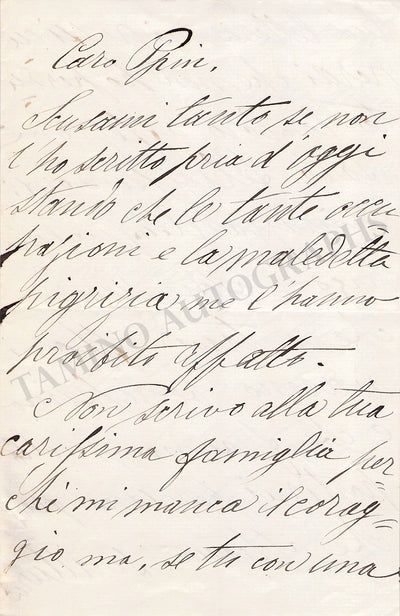 Caro Ppin,
Scusami tanto se non
t'ho scritto pria d'oggi
stando che le tante occu=
pazioni e la maledetta
pigrizia me l'hanno
proibito affatto.
Non scrivo alla tua
carissima famiglia per=
chè mi manca il corag=
gio ma, se tu con una
TAMINO AUTOGRAPHS